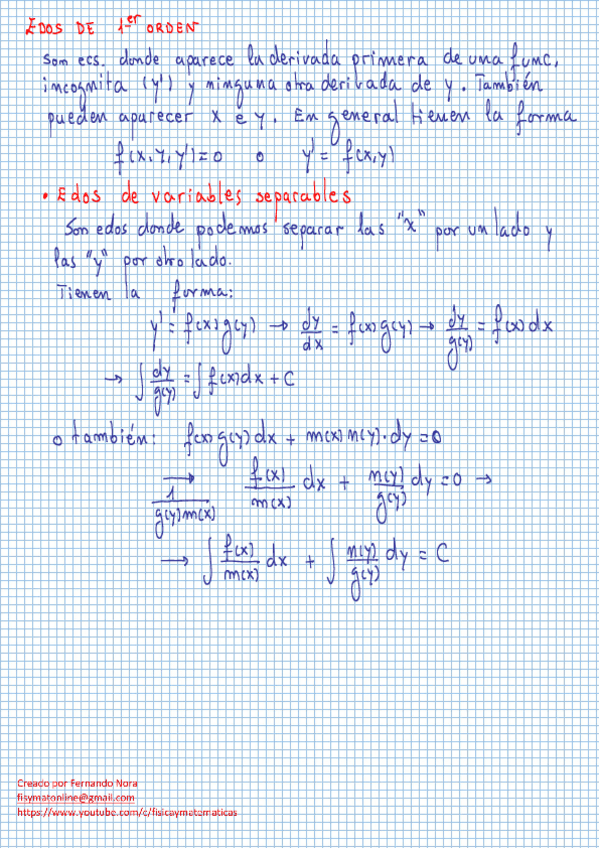 EDOS DE 1er ORDEN
Son ecs. donde aparece la derivada primera de una func,
incognita (y') y ninguna otra derivada de y. También
pueden aparecer x e y. En general tienen la forma
f(x,y,y')=0 o y' = f(x,y)
• Edos de variables separables
Son edos donde podemos separar las "x" por un lado y
las "y" por otro lado.
Tienen la forma:
y' = f(x) g(y) → dy/dx = f(x) g(y) → dy/g(y) = f(x) dx
→ ∫ dy/g(y) = ∫ f(x) dx + C
o también: f(x) g(y) dx + m(x) n(y) · dy = 0
→ 1/g(y)m(x) f(x)/m(x) dx + n(y)/g(y) dy = 0 →
→ ∫ f(x)/m(x) dx + ∫ n(y)/g(y) dy = C
Creado por Fernando Nora
fisymatonline@gmail.com
https://www.youtube.com/c/fisicaymatematicas